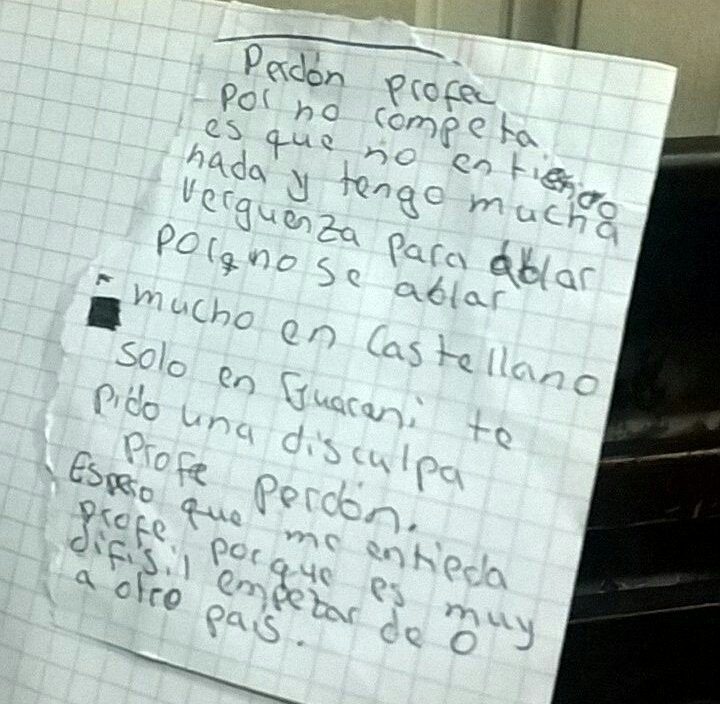 Perdón profe
por no competa
es que no entiendo
nada y tengo mucha
verguenza para ablar
porq no se ablar
mucho en Castellano
solo en Guarani te
pido una disculpa
profe perdón.
Espero que me entieda
profe, porque es muy
difisil empezar de 0
a otro pais.